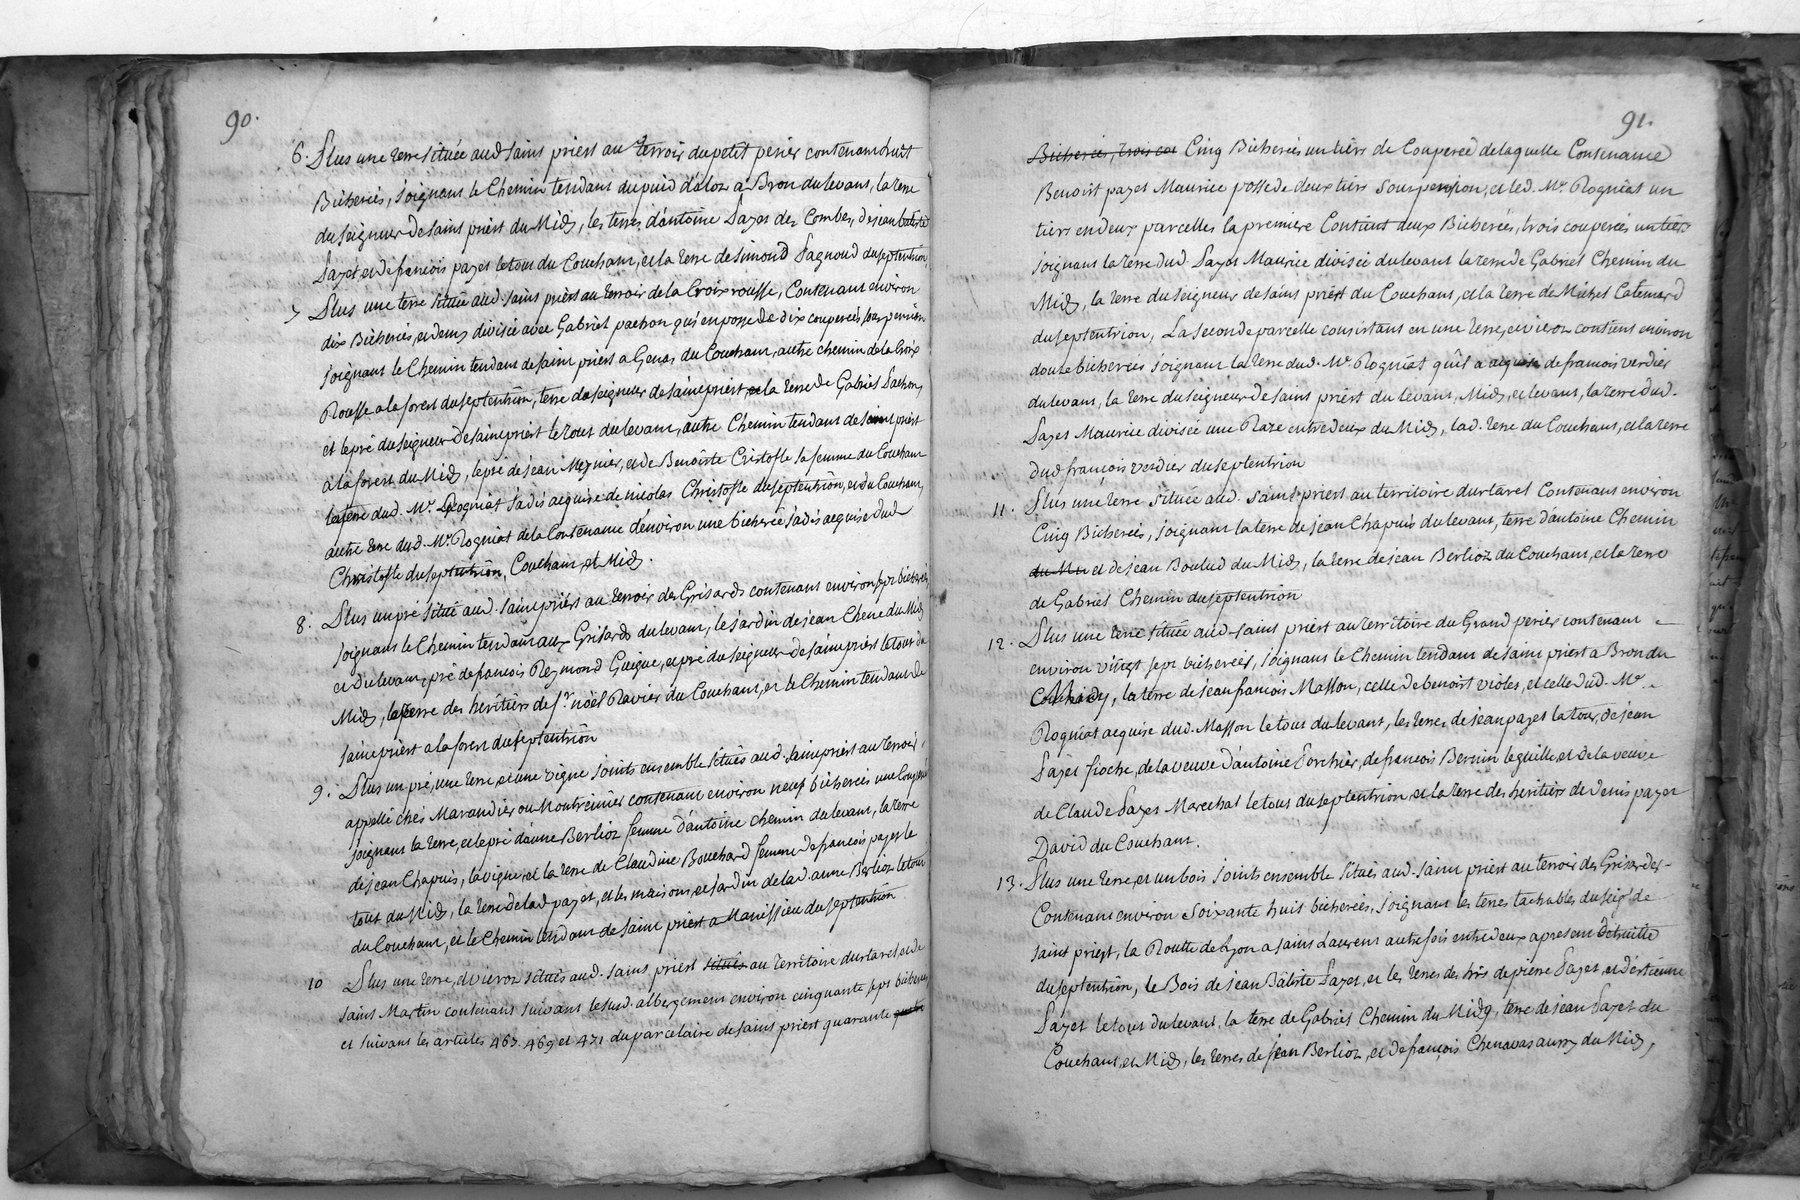 90.
6. Plus une terre située aud. saint priest au terroir du petit perier contenant huit
Bicherées, joignant le Chemin tendant du puid d'aloz a Bron du levant, la terre
du seigneur de saint priest du Midy, les terres d'antoine Payet des Combes, de jean batiste
Payet et de françois payet le tout du Couchant, et la terre de simond Pagnoud du septentrion,
7 Plus une terre située aud. saint priest au terroir de la Croix rousse, Contenant environ
dix Bicherées, et demy divisée avec Gabriel pachon qui en possede dix couperées sour pension
joignant le Chemin tendant de saint priest a Genas du Couchant, autre chemin de la Croix
Rousse a la forest du septentrion, terre du seigneur de saint priest, et la terre de Gabriel Pachon,
et le pré du seigneur de saint priest le tout du levant, autre Chemin tendant de saint priest
a la forest du Midy, le pré de jean Meynier, et de Benoiste Cristofle sa femme du Couchant
la terre dud. Mr. Rogniat jadis acquise de nicolas Christofle du septentrion, et du Couchant,
autre terre dud. Mr. Rogniat de la Contenance d'environ une bicherée jadis acquise dud.
Christofle du septentrion, Couchant, et Midy.
8. Plus un pré situé aud. saint priest au terroir des Grisards contenant environ sept bicherées
joignant le Chemin tendant aux Grisards du levant, le jardin de jean Chene du Midy
et du levant, pré de françois Reymond Guigue, et pré du seigneur de saint priest le tout du
Midy, la terre des heritiers de sr. noël Ravier du Couchant, et le Chemin tendant de
saint priest a la forest du septentrion
9. Plus un pré, une terre, et une vigne joints ensemble situés aud. saint priest au terroir,
appellé chés Marandier ou Montremier contenant environ neuf bicherées une Couperée
joignant la terre, et le pré d'anne Berlioz femme d'antoine chemin du levant, la terre
de jean Chapuis, la vigne, et la terre de Claudine Bouchard femme de françois payet le
tout du Midy, la terre de lad. payet, et les maisons, et jardin de lad. anne Berlioz le tout
du Couchant, et le Chemin tendant de saint priest a Manissieu du septentrion
10 Plus une terre, et vieroz situés aud. saint priest situés au territoire du rtaret, et de
saint Martin contenant suivant le sud. albergement environ cinquante sept bicherées
et suivant les articles 467. 469 et 471 du parcelaire de saint priest quarante quatre
91.
Bicherées, trois cou Cinq Bicherées un tiers de Couperée de laquelle Contenance
Benoist payet Maurice possede deux tiers sour pension, et led. Mr. Rogniat un
tiers en deux parcelles la premiere Contient deux Bicherées, trois couperées un tiers
joignant la terre dud. Payet Maurice divisée du levant la terre de Gabriel Chemin du
Midy, la terre du seigneur de saint priest du Couchant, et la terre de Michel Catemard
du septentrion, La seconde parcelle consistant en une terre, et vieroz contient environ
douze bicherées joignant la terre dud. Mr. Rogniat qu'il a acquise de francois verdier
du levant, la terre du seigneur de saint priest du levant, Midy, et levant, la terre dud.
Payet Maurice divisée une Raze entre deux du Midy, lad. terre du Couchant, et la terre
dud françois verdier du septentrion
11. Plus une terre située aud. saint priest au territoire du rtaret Contenant environ
Cinq Bicherées, joignant la terre de jean Chapuis du levant, terre d'antoine Chemin
du Mi et de jean Boulud du Midy, la terre de jean Berlioz du Couchant, et la terre
de Gabriel Chemin du septentrion
12. Plus une terre située aud. saint priest au territoire du Grand perier contenant
environ vingt sept bicherées, joignant le Chemin tendant de saint priest a Bron du
Midy, la terre de jean françois Masson, celle de benoist violes, et celle dud. Mr.
Rogniat acquise dud. Masson le tout du levant, les terres de jean payet la tour, de jean
Payet fioche, de la veuve d'antoine Torchier, de francois Bernin leguille, et de la veuve
de Claude Payet Marechal le tout du septentrion et la terre des heritiers de denis payet
David du Couchant.
13. Plus une terre, et un bois joints ensemble situés aud. saint priest au terroir des Grisardes
Contenant environ soixante huit bicherées, joignant les terres tachables du seigr. de
saint priest, la Routte de lyon a saint Laurent autrefois entre deux apresent detruitte
du septentrion, le Bois de jean Bâtiste Payet, et les terres des hrs de pierre Payet, et d'estienne
Payet le tout du levant, la terre de Gabriel Chemin du Midy, terre de jean Payet du
Couchant, et Midy, les terres de jean Berlioz, et de françois Chenavas aurry du Midy,